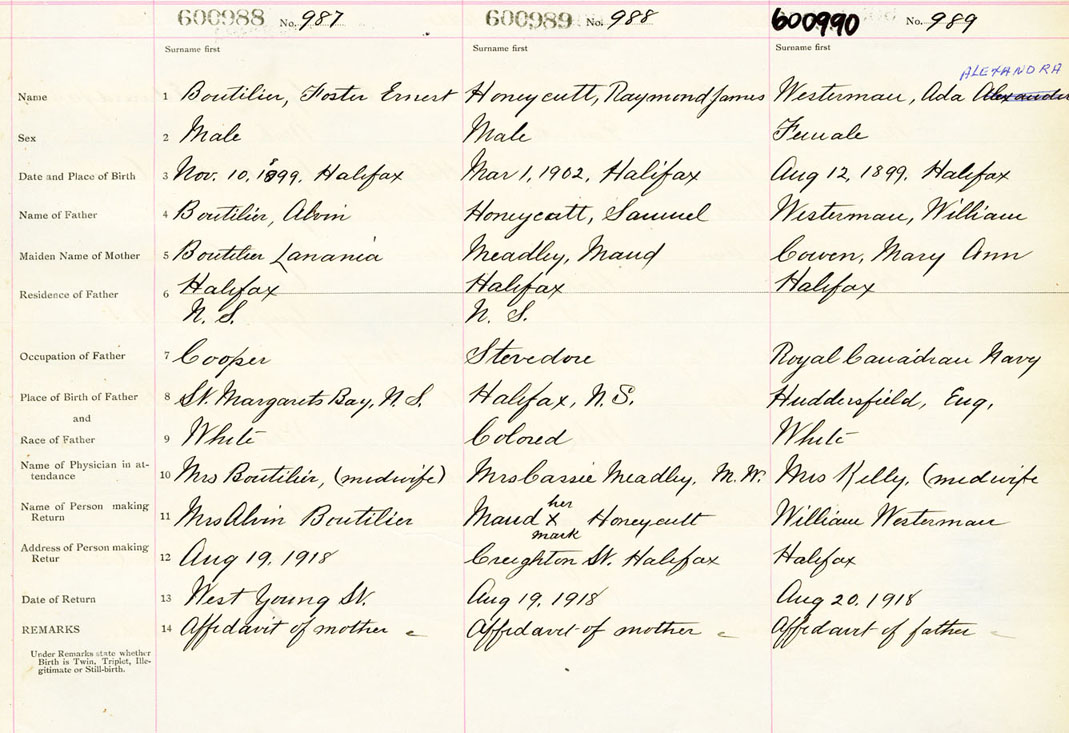 600988 No. 987 600989 No. 988 600990 No. 989
Surname first Surname first Surname first
ALEXANDRA
Name 1 Boutilier, Foster Ernest Honeycutt, Raymond James Westerman, Ada Alexander
Sex 2 Male Male Female
Date and Place of Birth 3 Nov. 10, 1899, Halifax Mar 1, 1902, Halifax Aug 12, 1899, Halifax
Name of Father 4 Boutilier, Alvin Honeycutt, Samuel Westerman, William
Maiden Name of Mother 5 Boutilier Lanania Meadley, Maud Cowen, Mary Ann
Residence of Father 6 Halifax Halifax Halifax
N. S. N. S.
Occupation of Father 7 Cooper Stevedore Royal Canadian Navy
Place of Birth of Father 8 St. Margarets Bay, N. S. Halifax, N. S. Huddersfield, Eng,
and
Race of Father 9 White Colored White
Name of Physician in at-
tendance 10 Mrs Boutilier, (midwife) Mrs Cassie Meadley, M. W. Mrs Kelly, (midwife
Name of Person making her
Return 11 Mrs Alvin Boutilier Maud x Honeycutt William Westerman
mark
Address of Person making
Retur 12 Aug 19, 1918 Creighton St. Halifax Halifax
Date of Return 13 West Young St. Aug 19, 1918 Aug 20, 1918
REMARKS 14 Affidavit of mother Affidavit of mother Affidavit of father
Under Remarks state whether
Birth is Twin, Triplet, Ille-
gitimate or Still-birth.